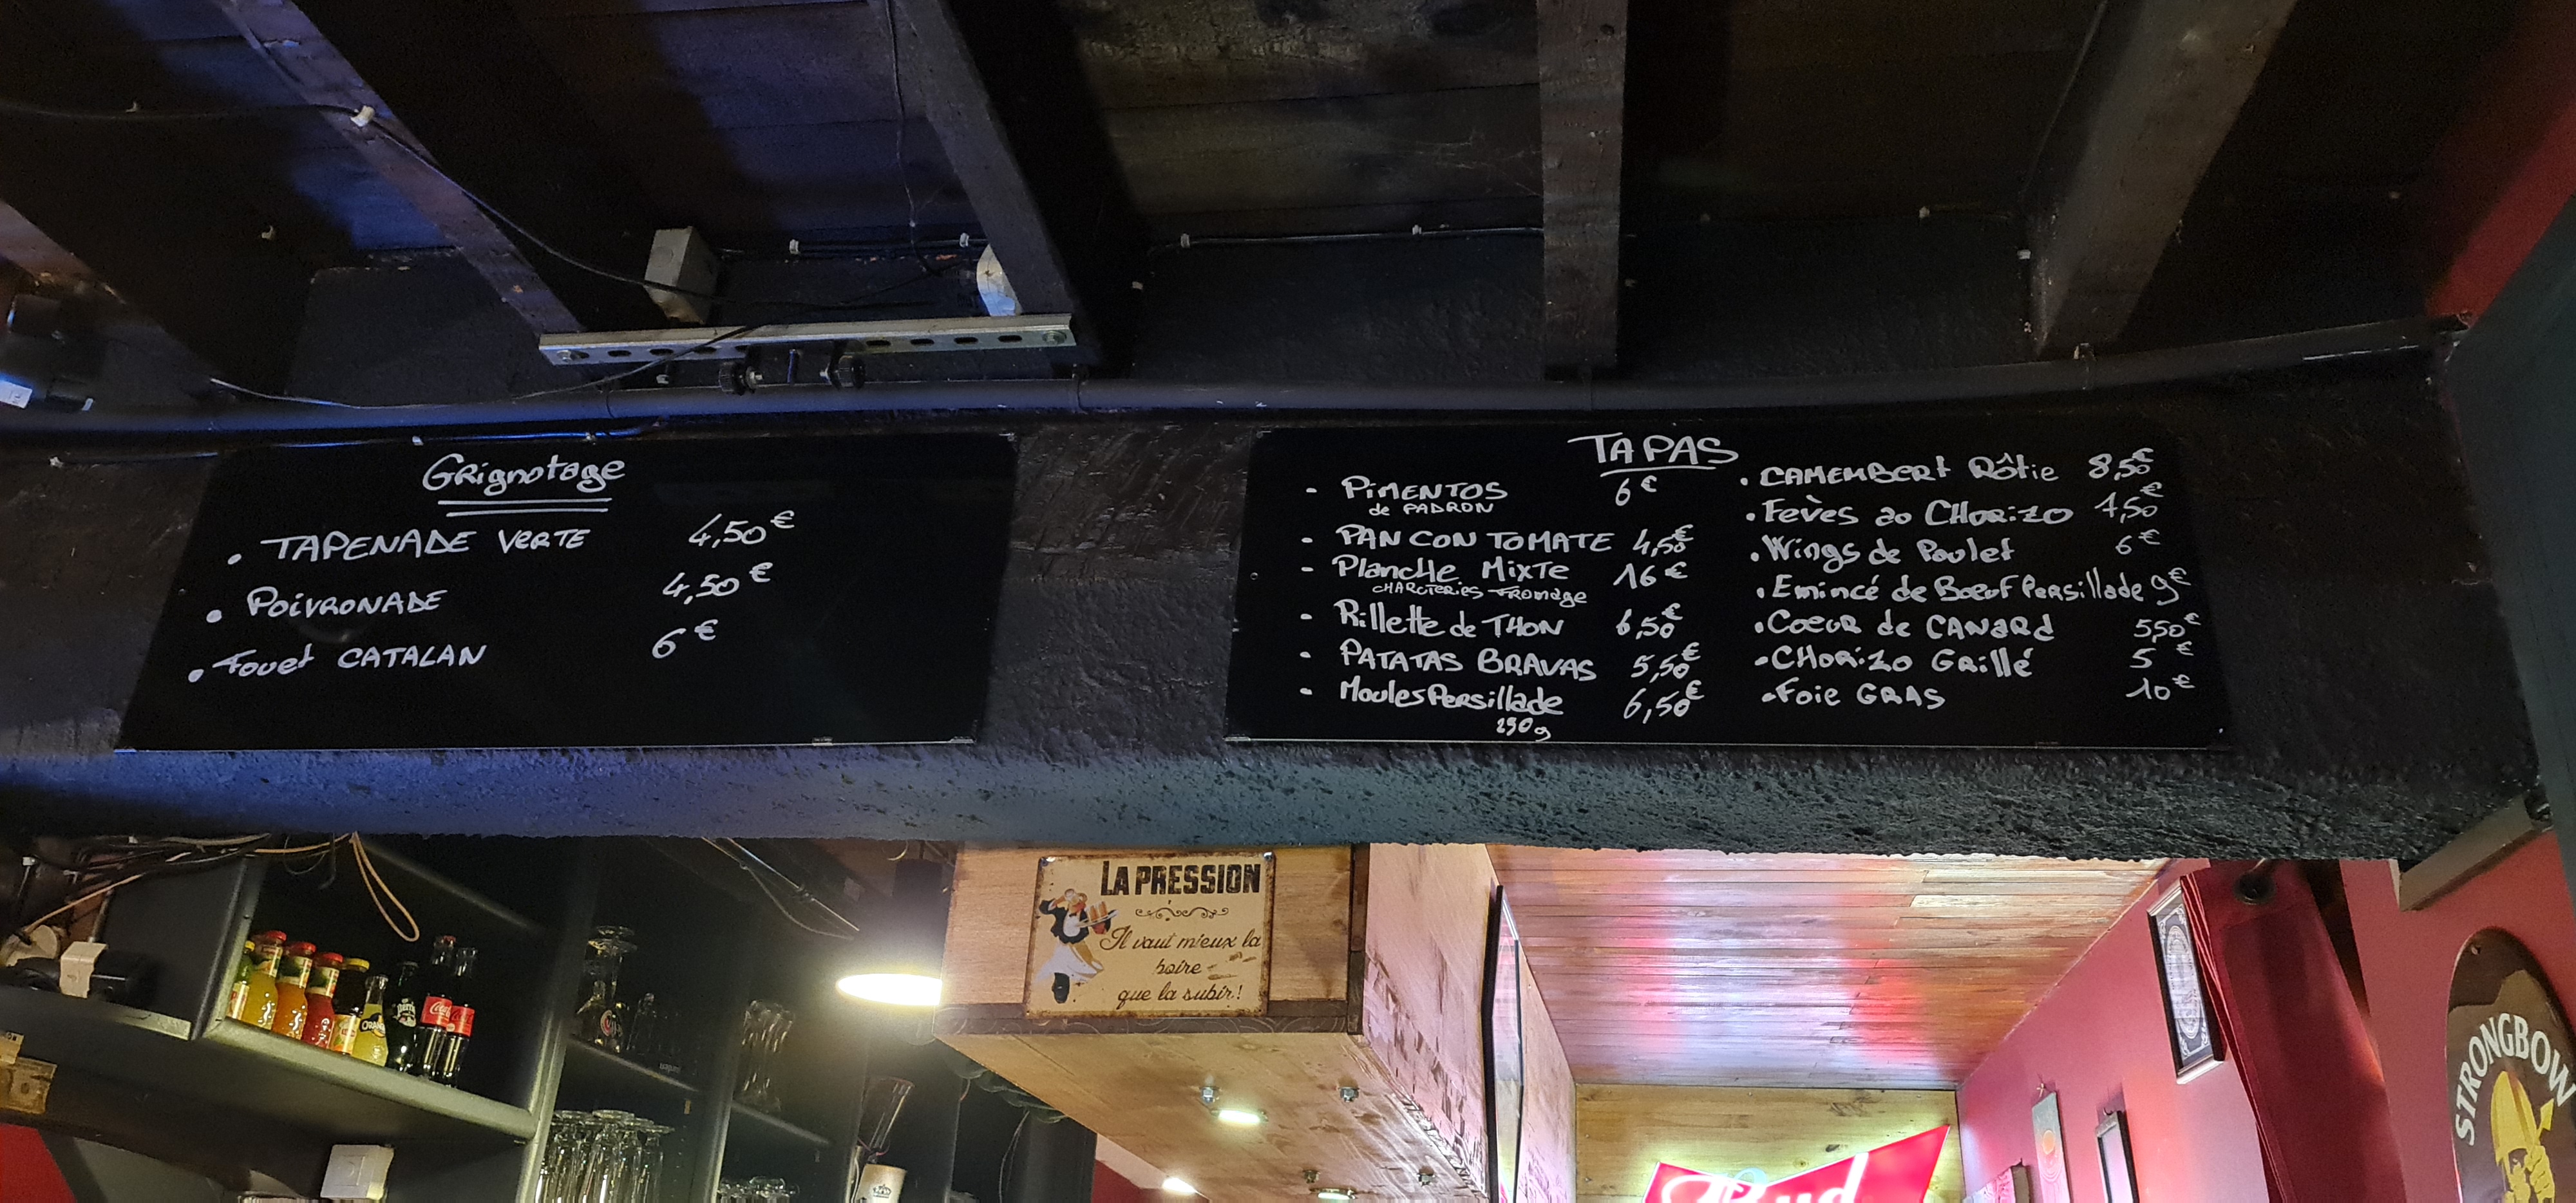 Grignotage
• TAPENADE VERTE 4,50€
• POIVRONADE 4,50€
• Fouet CATALAN 6€
TAPAS
- PiMENTOS 6€
de PADRON
- PAN CON TOMATE 4,50€
- Planche Mixte 16€
CHARCTERIES Fromage
- Rillette de THON 6,50€
- PATATAS BRAVAS 5,50€
- Moules Persillade 6,50€
250g
• CAMEMBERT Rôtie 8,50€
• Fèves ao CHORIZO 4,50€
• Wings de Poulet 6€
• Emincé de Bœuf Persillade 9€
• Coeur de CANARD 5,50€
• CHORIZO Grillé 5€
• Foie GRAS 10€
LA PRESSION
Il vaut mieux la
boire
que la subir!
STRONGBOW
Bud